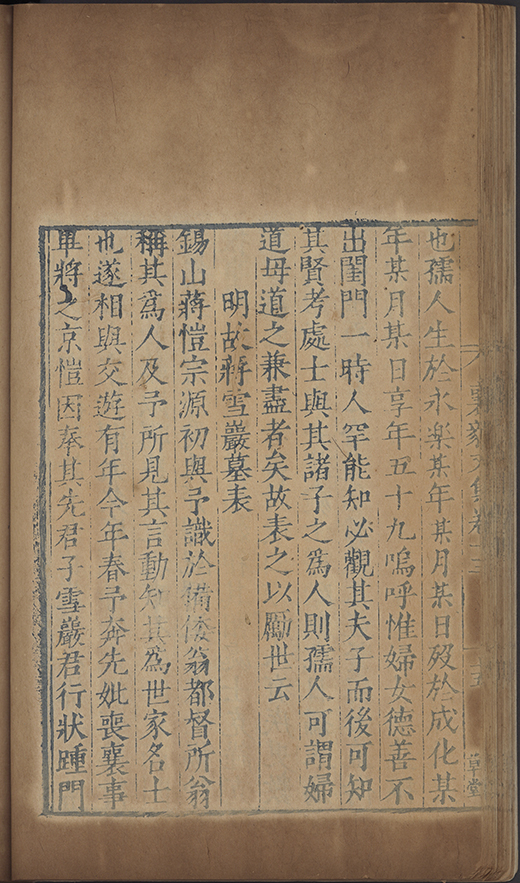 也孺人生於永樂某年某月某日歿於成化某
年某月某日享年五十九嗚呼惟婦女德善不
出閨門一時人罕能知必觀其夫子而後可知
其賢考處士與其諸子之爲人則孺人可謂婦
道母道之兼盡者矣故表之以勵世云
明故蔣雪巖墓表
錫山蔣愷宗源初與予識於備倭翁都督所翁
稱其爲人及予所見其言動知其爲世家名士
也遂相與交遊有年今年春予奔先妣喪襄事
畢將之京愷因奉其先君子雪巖君行狀踵門
襄毅文集卷十三
十五
草堂